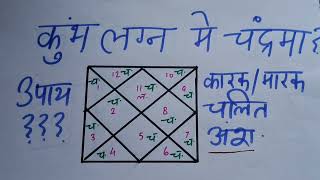 कुंभ लग्न मे चंद्रमा?
उपाय
???
कारक/मारक
चलित
अंश
12 चं. चं. 10 चं.
चं. 1 11 ल. चं. 9
चं. 2 8 चं.
चं. 3 5 चं. चं. 7
4 6 चं.